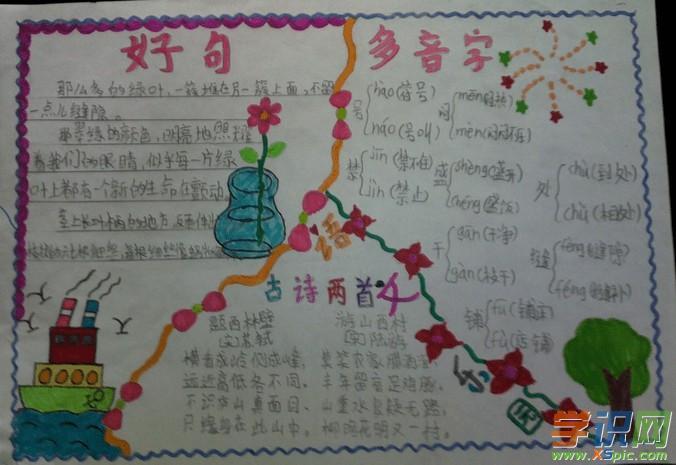 好句
那么多的绿叶，一簇堆在另一簇上面，不留
一点儿缝隙。
翠绿的颜色，明亮地照耀
着我们的眼睛，似乎每一片绿
叶上都有一个新的生命在颤动
多音字
号
hào(符号)
háo(号叫)
闷
mēn(闷热)
mèn(闷闷不乐)
禁
jīn(禁不住)
jìn(禁止)
盛
shèng(盛开)
chéng(盛饭)
处
chù(到处)
chǔ(相处)
干
gān(干净)
gàn(枝干)
缝
铺
语
文
小
古诗两首
题西林壁
(宋)苏轼
横看成岭侧成峰，
远近高低各不同。
不识庐山真面目，
只缘身在此山中。
游山西村
(宋)陆游
莫笑农家腊酒浑，
丰年留客足鸡豚。
山重水复疑无路，
柳暗花明又一村。
学识网
www.XSpic.com